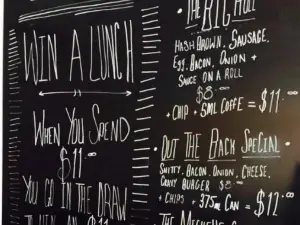 WIN A LUNCH
WHEN YOU SPEND
$11.00
YOU GO IN THE DRAW
TO WIN AN $11
• THE BIG ROLL
HASH BROWN, SAUSAGE,
EGG, BACON, ONION +
SAUCE ON A ROLL
$8.00
+ CHIP + SML COFFE = $11.00
• OUT THE BACK SPECIAL •
BACON, ONION, CHEESE,
BURGER $8.00
+ CHIPS + 375ML CAN = $12.00
• THE